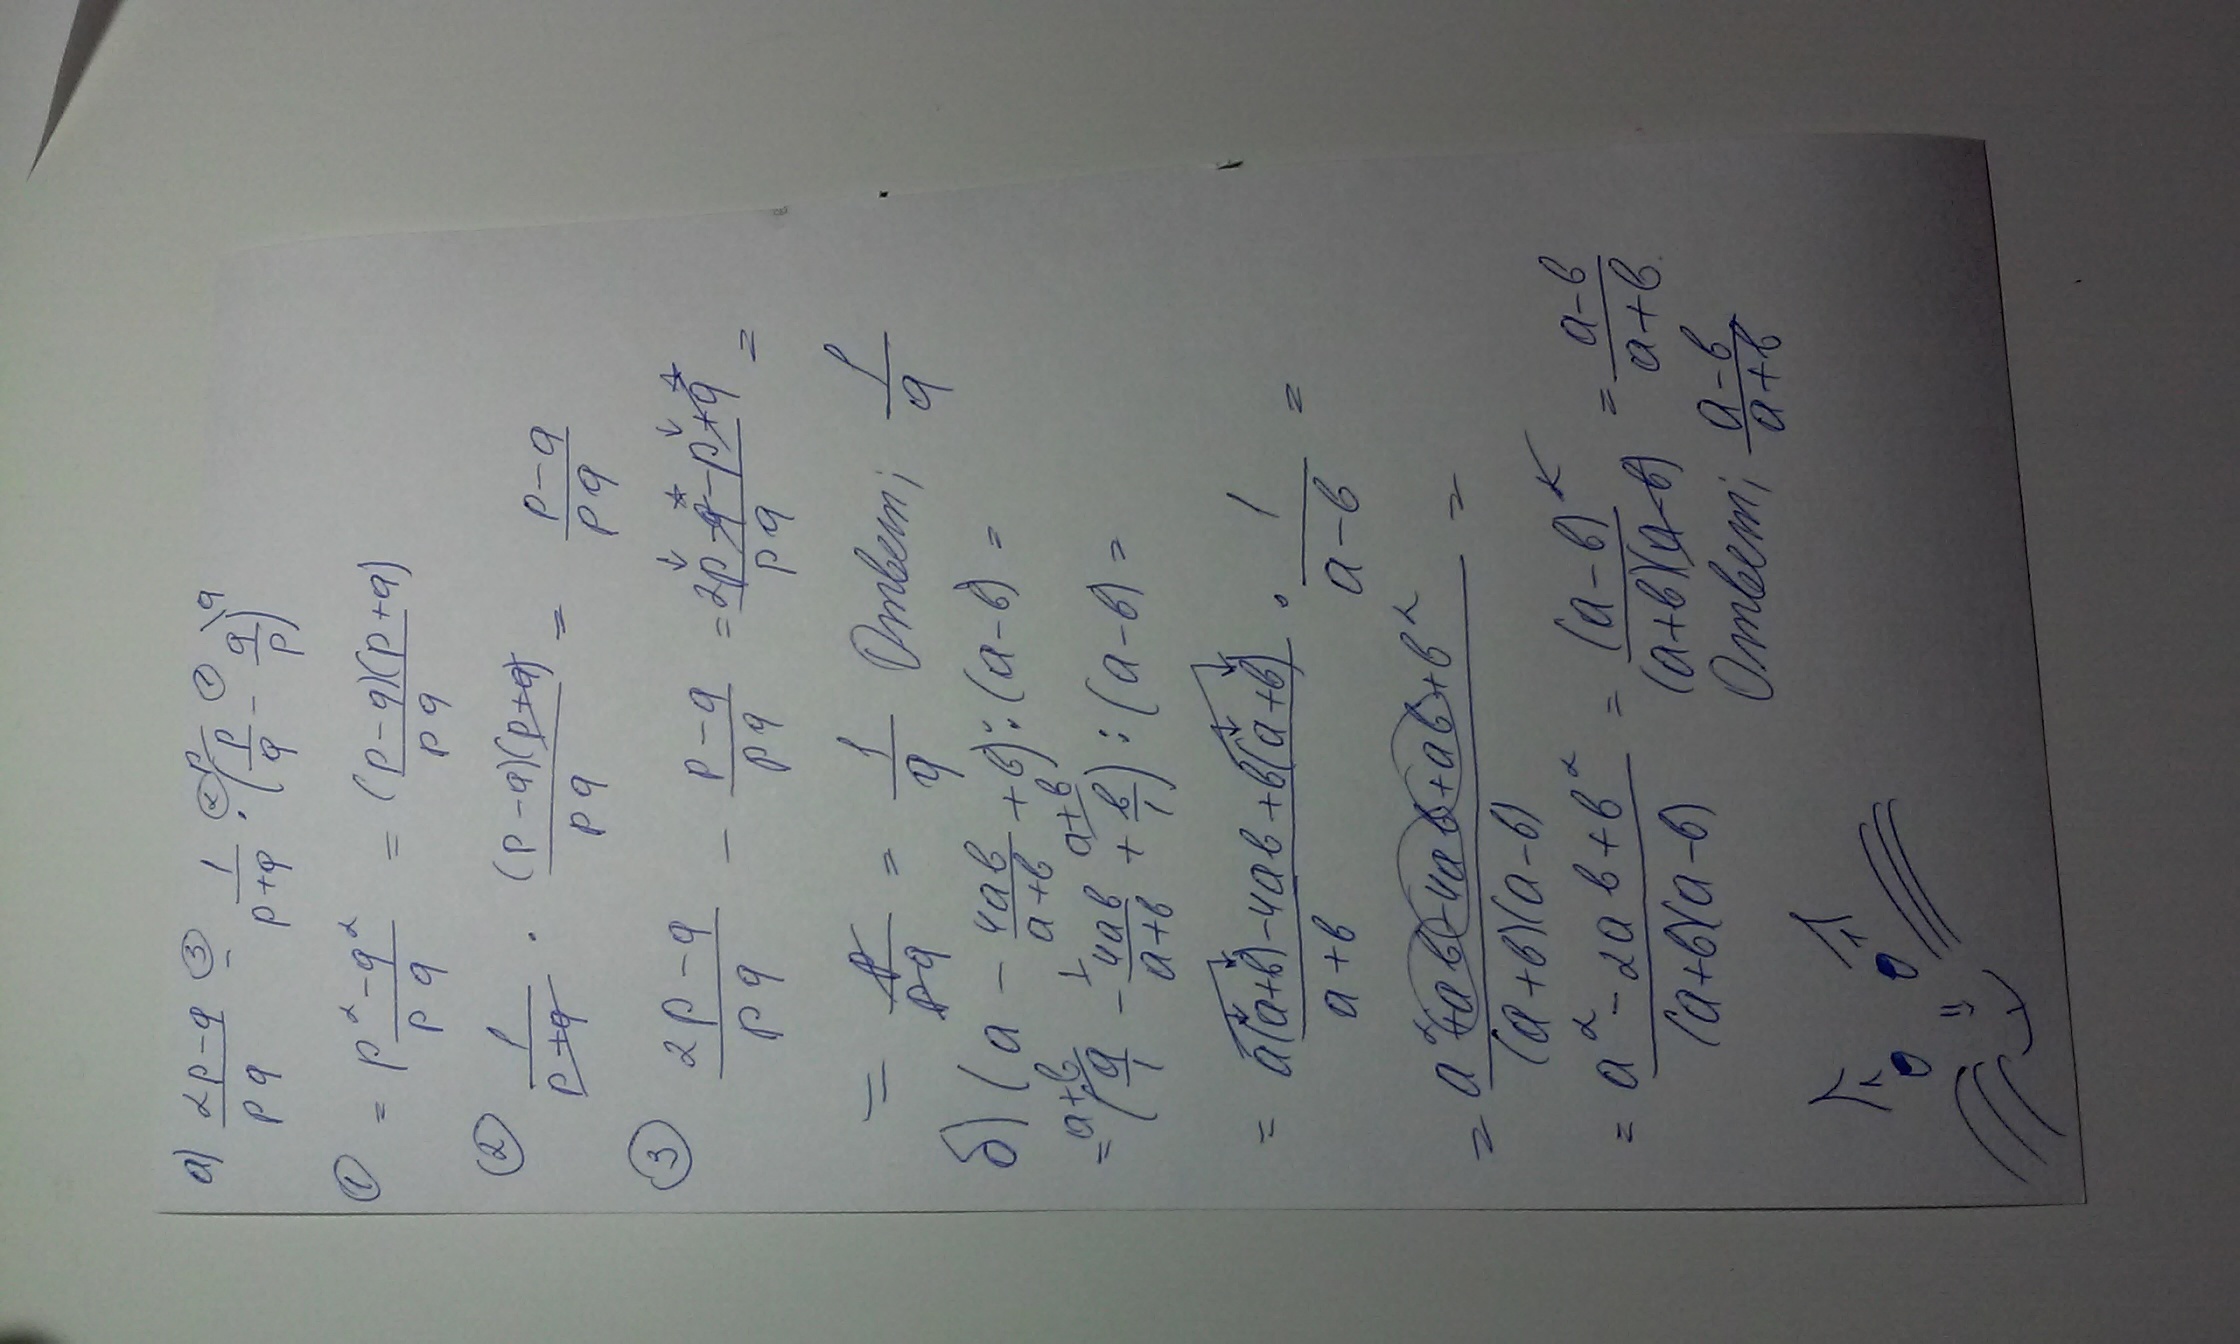 а) (2p-q)/(pq) ③ - 1/(p+q) ② · (p\ p/q ① - q/p \q)
① = (p²-q²)/(pq) = ((p-q)(p+q))/(pq)
② 1/(p+q) · ((p-q)(p+q))/(pq) = (p-q)/(pq)
③ (2p-q)/(pq) - (p-q)/(pq) = (2p-q-p+q)/(pq) =
= p/(pq) = 1/q Ответ; 1/q
б) (a - 4ab/(a+b) + b) : (a-b) =
= (a+b\ a/1 - 1\ 4ab/(a+b) + a+b\ b/1) : (a-b) =
= (a(a+b)-4ab+b(a+b))/(a+b) · 1/(a-b) =
= (a²+ab-4ab+ab+b²)/((a+b)(a-b)) =
= (a²-2ab+b²)/((a+b)(a-b)) = (a-b)²/((a+b)(a-b)) = (a-b)/(a+b)
Ответ; (a-b)/(a+b)